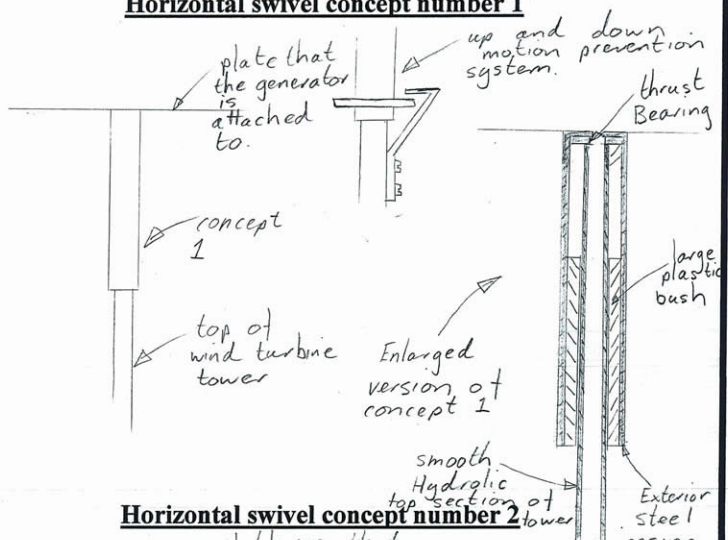 Horizontal swivel concept number 1
plate that
the generator
is
attached
to.
up and down
motion prevention
system.
thrust
Bearing
concept
1
large
plastic
bush
top of
wind turbine
tower
Enlarged
version of
concept 1
smooth
Hydrolic
top section of
tower
Exterior
steel
Horizontal swivel concept number 2